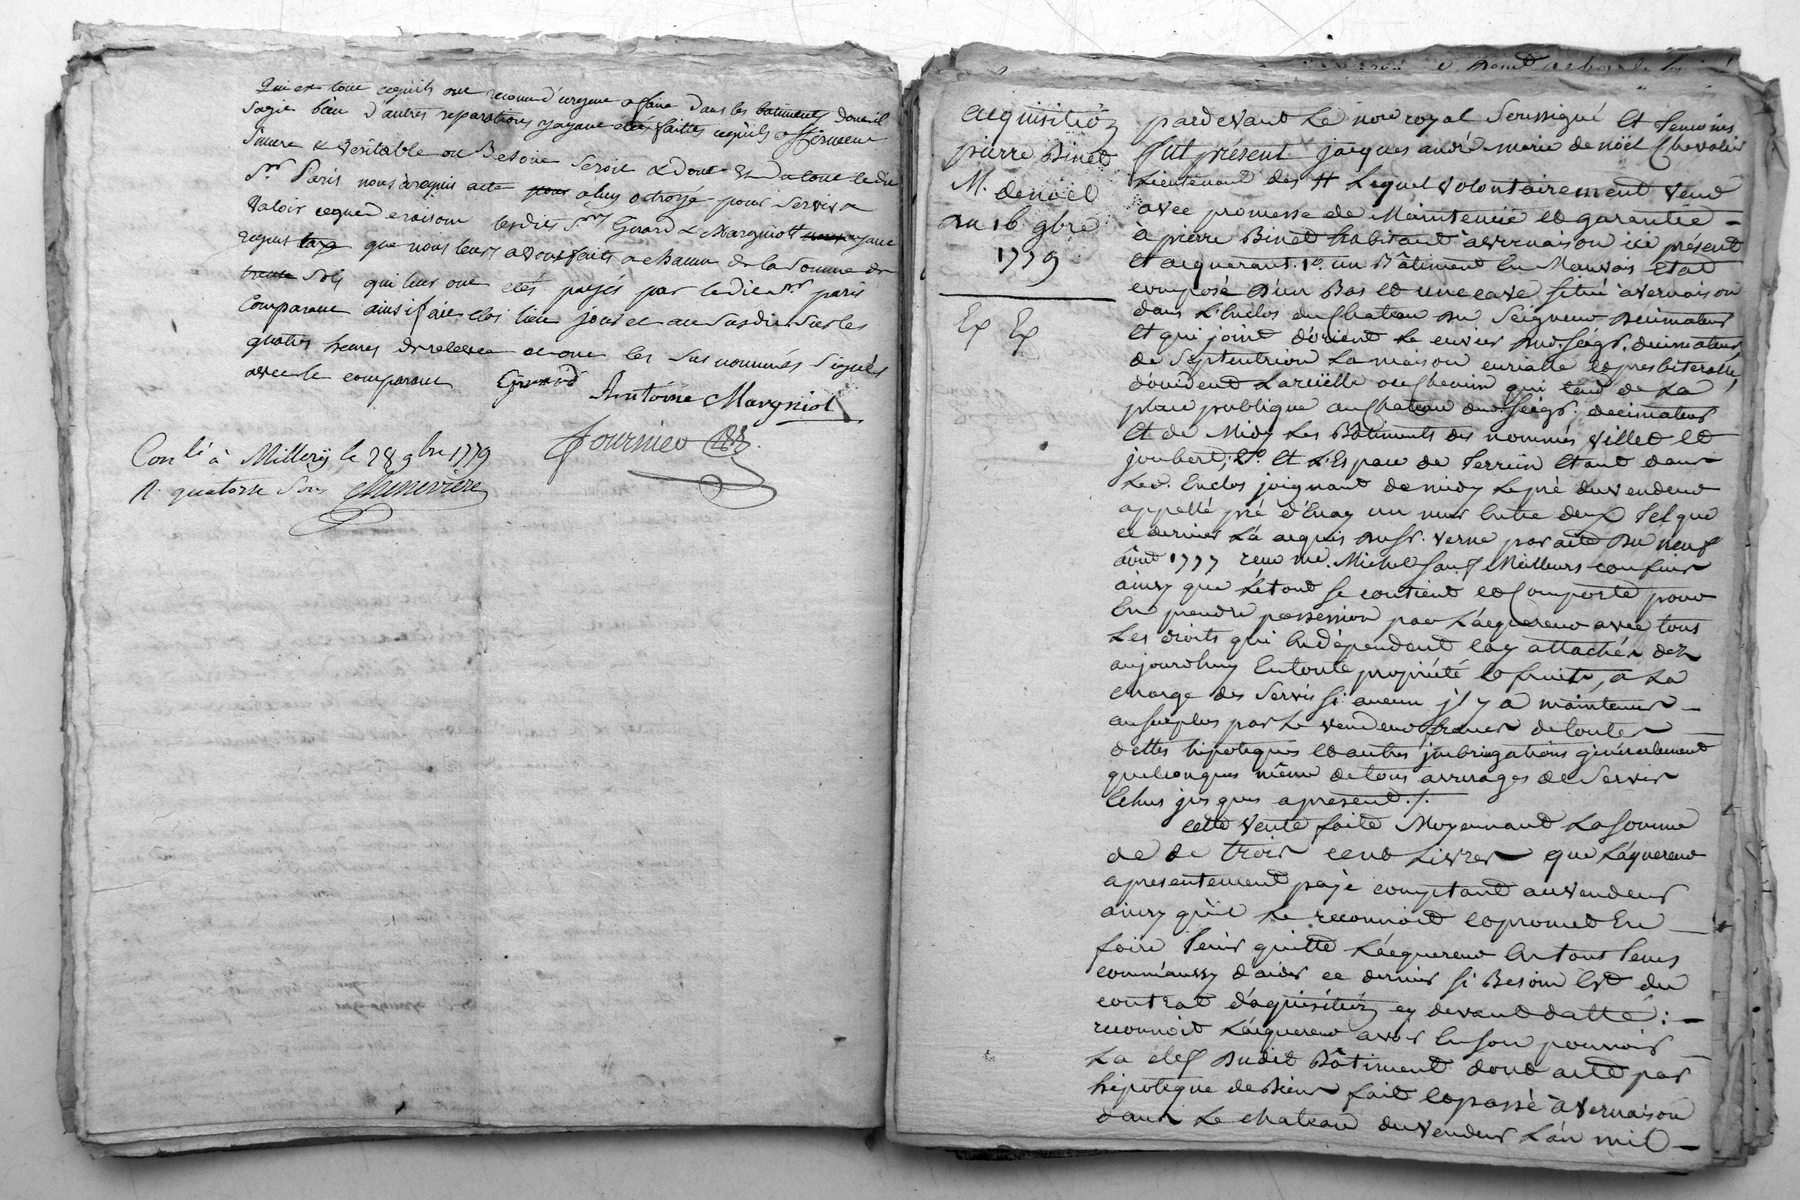 Qui est tout cequils ont reconnu d'urgene a faire dans les batiments
sagir bien d'autres reparations ayant etés faittes cequils afferment
sincere & veritable ou Besoin seroit & dont Et du tout le dit
Sr. Paris nous à requis acte pour a luy octroyé pour servir &
valoir ceque de raison lesdits Srs Girard & Margniol
requis taxe que nous leurs avons faits a chacun de la somme de
trente sols qui leur ont etés payés par ledit Sr. paris
comparant ainsi fait clos lieu jour et an susdit sur les
quatres heures de relevée et ont les sus nommés signés
avec le comparant Girard
Antoine Margniol
fournier
Con.lé à Millery le 28 9bre 1779
R. quatorze sous Chenevière
acquisition
pierre Binet
M. denoël
du 16 9bre
1779
Ex Ex
pardevant Le no.re royal soussigné Et temoins
fut présent jacques andré marie denoël Chevalier
Lieutenant des Lequel volontairement vend
avec promesse de Maintenüe et garantie
à pierre Binet habitant à vernaison ici présent
Et acquerant. 1° un Bâtiment En Mauvais Etat
composé d'un Bas et une cave situé à vernaison
dans L'Enclos du Chateau du Seigneur decimateur
Et qui joint d'orient Le cuvier dud. seigr. decimateur
de septentrion La maison curiale et presbiteralle,
d'occident La ruëlle ou Chemin qui tend de La
place publique au Chateau dud. seigr. decimateur
Et de Midy Les Bâtiments des nommés villet et
joubert; 2° Et L'Espace de Terrein Etant dans
Led. Enclos joignant de midy Le pré du vendeur
appellé pré d'Enay un mur Entre deux Tel que
ce dernier L'a acquis du Sr. verne par acte du neuf
août 1777 recu me. Michel sauf Meilleurs confins
ainsy que Letout se contient et Comporte pour
En prendre possession par L'acquereur avec tous
Les droits qui En dépendent et y attachés dez
aujourdhuy En toute propriété et fruits, a La
charge des servis si aucun j'l y a maintenir
au surplus par Le vendeur francs de toutes
dettes hipoteques et autres jmbrigations généralement
quelconques même de tous arrerages de servis
Echus jus ques apresent./.
cette vente faite Moyennant La somme
de de trois cent Livres que L'aquereur
a presentement payé comptant au vendeur
ainsy qu'il Le reconnoit et promet En
faire Tenir quitte L'acquereur En tous Tems
comm'aussy d'aider ce dernier si Besoin Est du
contrat d'aquisition cy devant datté:
reconnoit L'acquereur avoir En son pouvoir
La clef dudit Bâtiment dont acte par
hipoteque de Biens fait et passé à vernaison
dans Le chateau du vendeur L'an mil